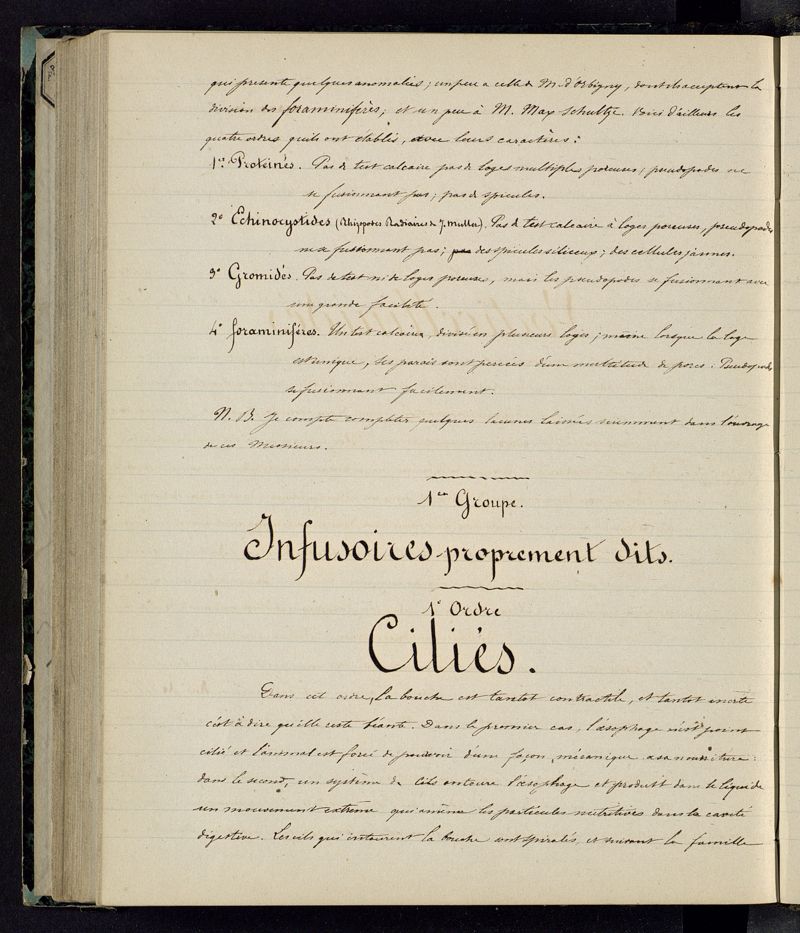 qui présente quelques anomalies; un peu a celle de M. d'Orbigny, dont ils acceptent la
division des foraminifères; et un peu à M. Max Schultze. Voici d'ailleurs les
quatre ordres qu'ils ont etablis, avec leurs caractères:
1er Proteinés. Pas de test calcaire pas de loges multiple poreuses; pseudopodes ne
se fusionnant pas; pas de spicules.
2o Echinocystides (Rhizopodes Radiaires de J. Muller). Pas de test calcaire à loges poreuses, pseudopodes
ne se fusionnant pas; des spicules siliceux; des cellules jaunes.
3o Gromidés. Pas de test ni de loges poreuses, mais les pseudopodes se fusionnant avec
une grande facilité.
4o foraminifères. Un test calcaire, divisé en plusieurs loges; même lorsque la loge
est unique, ses parois sont percées d'une multitude de pores: Pseudopodes
se fusionnant facilement.
N. B. Je compte completer quelques lacunes laissées dans l'ouvrage
de ces Messieurs.
1er Groupe.
Infusoires proprement dits.
1o Ordre
Ciliés.
Dans cet ordre, la bouche est tantot contractile, et tantot inerte
c'est à dire qu'elle reste béante. Dans le premier cas, l'œsophage n'est point
cilié et l'animal est forcé de pourvoir d'une façon mécanique a sa nourriture:
dans le second, un système de cils entoure l'œsophage et produit dans le liquide
un mouvement extrême qui amène les particules nutritives dans la cavité
digestive. Les cils qui entourent la bouche sont spiralés, et suivant la famille